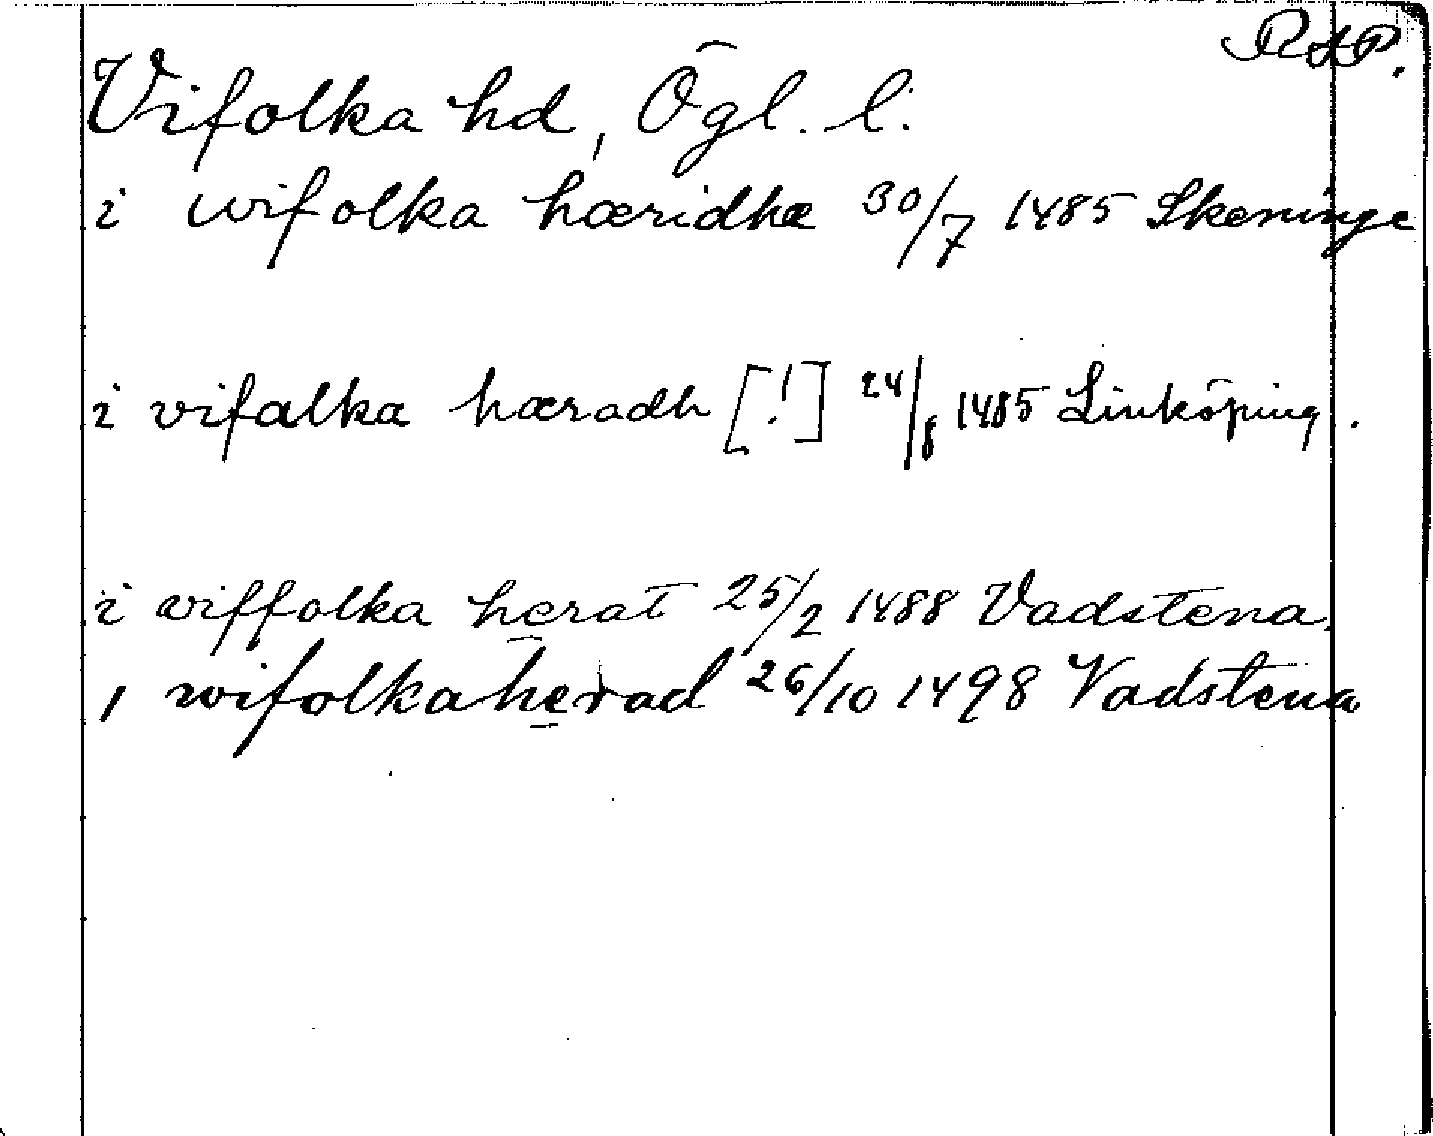 RAP.
Vifolka hd, Ögl. l.
i wifolka hæridhæ 30/7 1485 Skeninge
i vifalka hæradh [!] 24/8 1485 Linköping.
i viffolka herat 25/2 1488 Vadstena.
i wifolkaherad 26/10 1498 Vadstena